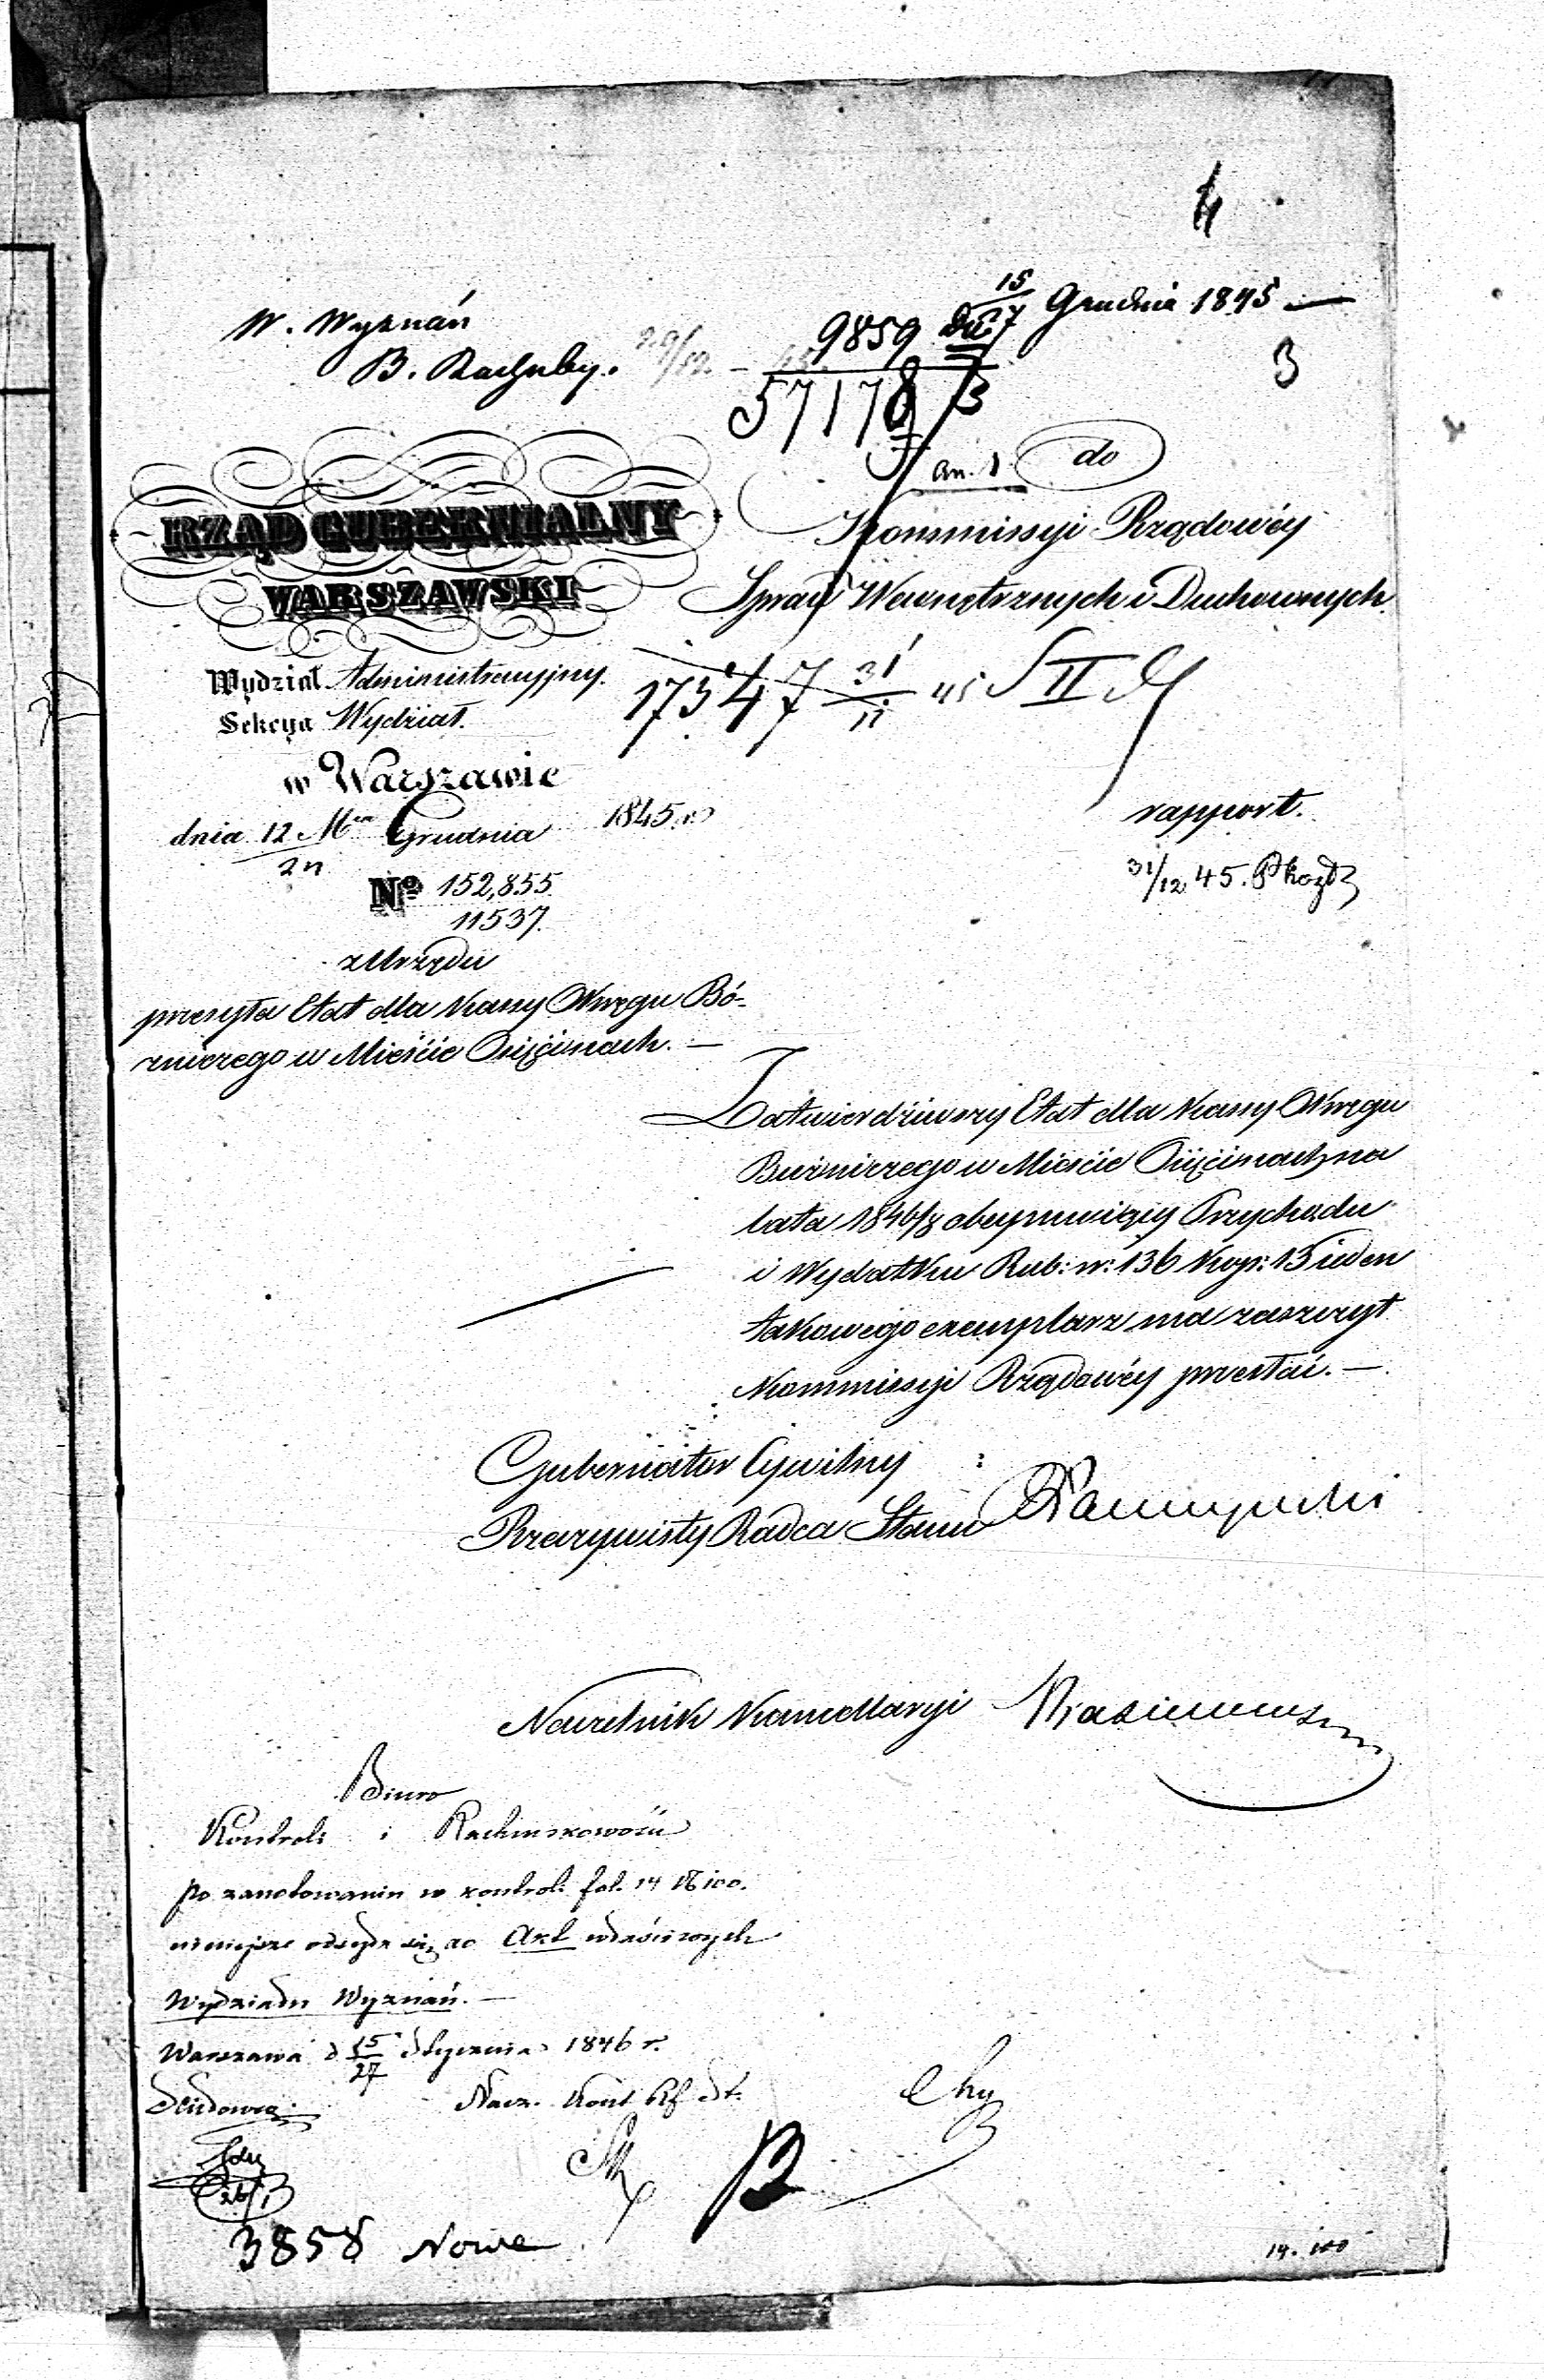 4
15 Grudnia 1845 —
W. Wyznań
9859 27
3
B. Rachuby. 29/12.
57178
do
RZĄD GUBERNIALNY
WARSZAWSKI
Kommissyi Rządowéy
Spraw Wewnętrznych i Duchownych
Wydział Administracyjny.
Sekcya Wydział.
17347 31/11 45 S II
w Warszawie
dnia 12/24 Mca Grudnia 1845 r.
rapport.
31/12 45.
No 152,855.
11537.
z Urzędu
przesyła Etat dla Kassy Okręgu Bó-
żniczego w Mieście Osięcinach. —
Zatwierdziwszy Etat dla Kassy Okręgu
Bużniczego w Mieście Osięcinach na
lata 1846/8 obeymuiący Przychodu
i Wydatku Rub: sr: 136 kop: 15 ieden
takowego exemplarz ma zaszczyt
Kommissyi Rządowéy przesłać. —
Gubernator Cywilny
Rzeczywisty Radca Stanu
Naczelnik Kancellaryi
Biuro
Kontroli i Rachunkowości
po zanotowaniu w kontroli fol. 14 N 100.
ninieysze odsyła się do Akt właściwych
Wydziału Wyznań. —
Warszawa d 15/27 Stycznia 1846 r.
Nacz. Kont
26/1
3858 Nowe
14. 100